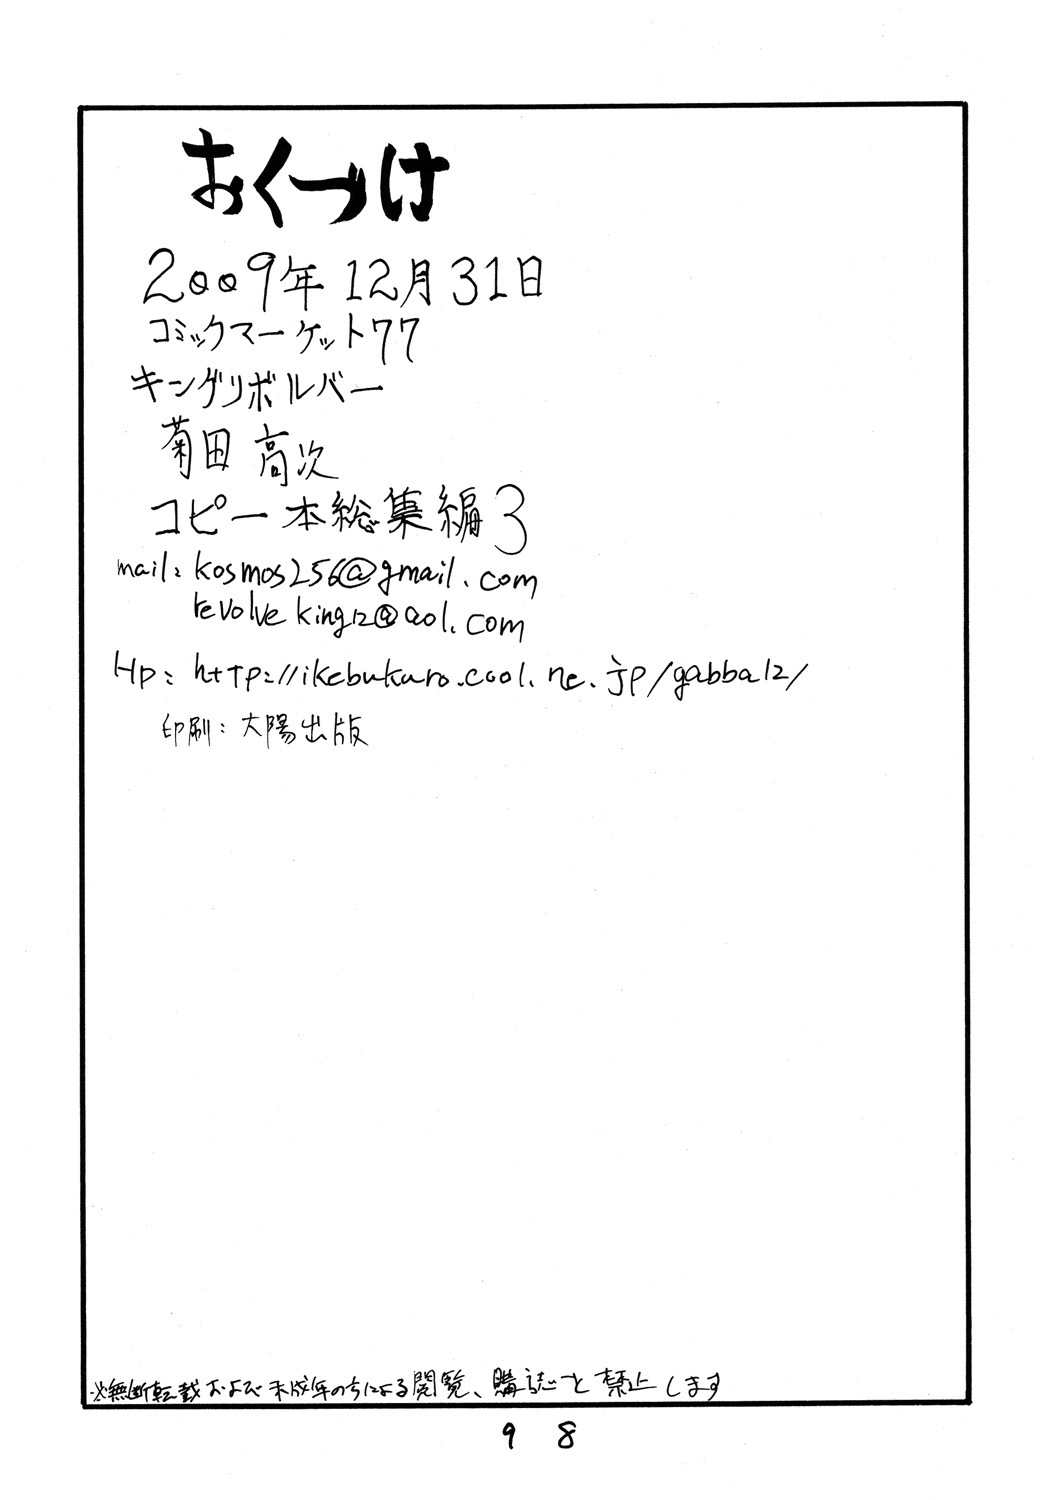 おくづけ
2009年 12月31日
コミックマーケット77
キングリボルバー
菊田 高次
コピー本総集編3
mail: kosmos256@gmail.com
revolveking12@aol.com
Hp: http://ikebukuro.cool.ne.jp/gabba12/
印刷: 大陽出版
※無断転載および未成年のちによる閲覧、購読を禁止します
98